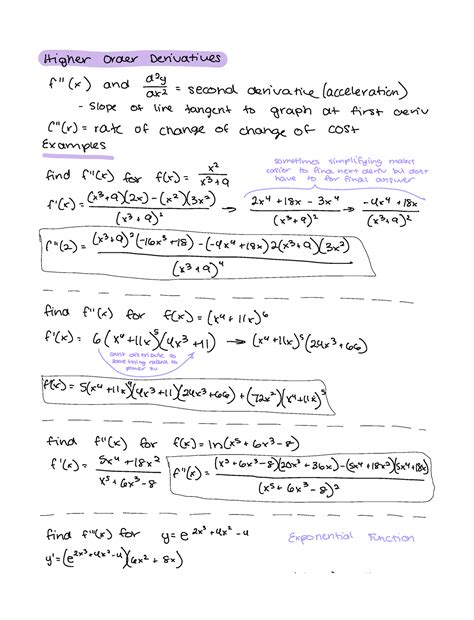 Higher Order Derivatives
f''(x) and d²y/dx² = second derivative (acceleration)
- slope of line tangent to graph at first deriv
C''(x) = rate of change of change of cost
Examples
sometimes simplifying makes
easier to find next deriv but dont
have to for final answer
find f''(x) for f(x) = x²/(x³+9)
f'(x) = ((x³+9)(2x) - (x²)(3x²))/(x³+9)² → (2x⁴ + 18x - 3x⁴)/(x³+9)² → (-x⁴ + 18x)/(x³+9)²
f''(2) = ((x³+9)²(-16x³+18) - (-4x⁴+18x)2(x³+9)(3x²))/(x³+9)⁴
find f''(x) for f(x) = (x⁴ + 11x)⁶
f'(x) = 6(x⁴ + 11x)⁵(4x³ + 11) → (x⁴ + 11x)⁵(24x³ + 66)
cant distribute to
something raised to
power
f(x) = 5(x⁴ + 11x)⁴(4x³ + 11)(24x³ + 66) + (72x²)(x⁴ + 11x)⁵
find f''(x) for f(x) = ln(x⁵ + 6x³ - 8)
f'(x) = (5x⁴ + 18x²)/(x⁵ + 6x³ - 8) f''(x) = ((x⁵ + 6x³ - 8)(20x³ + 36x) - (5x⁴ + 18x²)(5x⁴ + 18x))/(x⁵ + 6x³ - 8)²
find f''(x) for y = e^(2x³ + 4x² - 4) Exponential Function
y' = (e^(2x³ + 4x² - 4))(6x² + 8x)